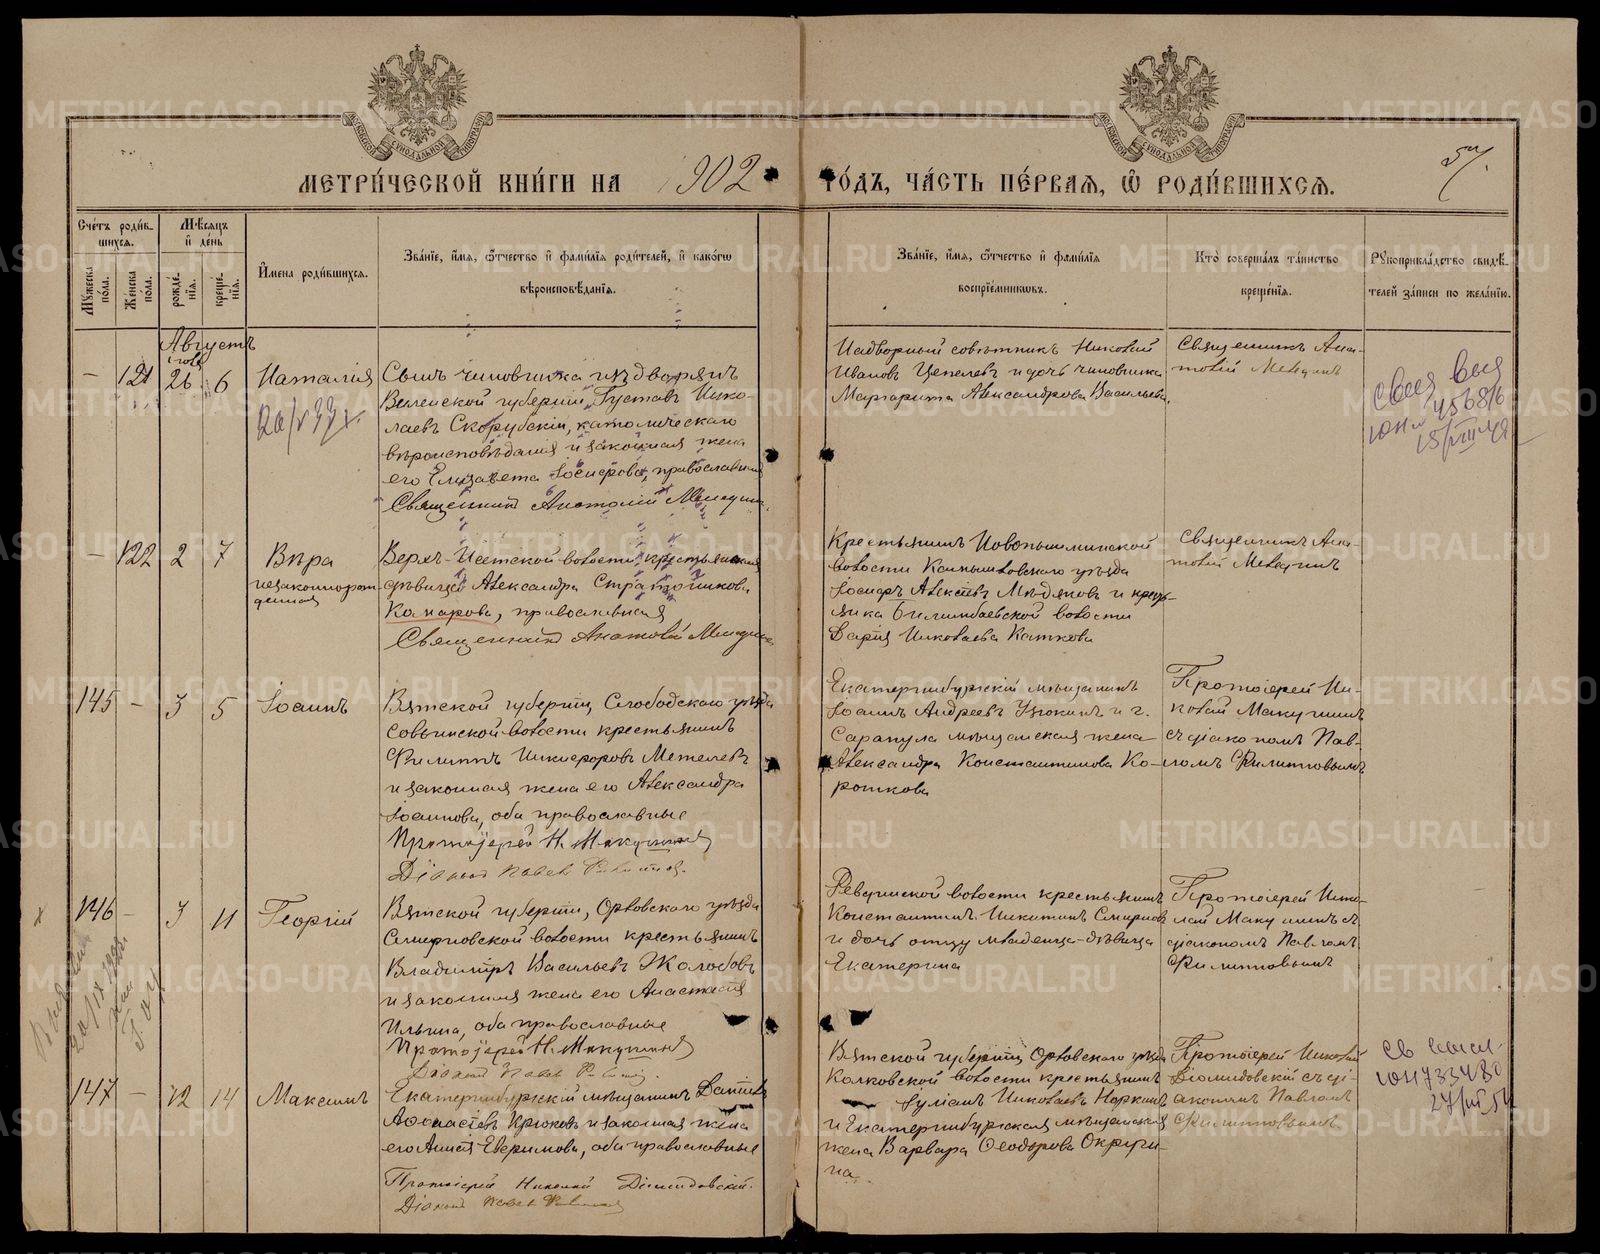 МЕТРИ́ЧЕСКОЙ КНИ́ГИ НА 1902
ГО́ДЪ, ЧА́СТЬ ПЕ́РВАЯ, Ѽ РОДИ́ВШИХСЯ.
57.
Сче́тъ роди́в-
шихся.
Мѣ́сяцъ
и҆ де́нь
Мꙋ́жеска по́ла.
Же́нска по́ла.
рожде́-
нїя.
креще́-
нїя.
И҆мена роди́вшихся.
Зва́нїе, и҆́мя, ѻ҆́тчество и҆ фами́лїя роди́телей, и҆ како́гѡ
вѣроисповѣ́данїя.
Зва́нїе, и҆́мя, ѻ҆́тчество и҆ фами́лїя
воспрїе́мникѡвъ.
Кто̀ соверша́лъ та́инство
креще́нїя.
Рꙋкоприкла́дство свидѣ́-
телей за́писи по жела́нїю.
Августъ
– 121 26 6 Наталія
Сынъ чиновника изъ дворянъ
Виленской губерніи Густавъ Нико-
лаевъ Скорубскій, католическаго
вѣроисповѣданія и законная жена
его Елизавета Іосифова, православная
Священникъ Анатолій
Надворный совѣтникъ Николай
Ивановъ Цепелевъ и дочь чиновника
Маргарита Александрова Васильева.
Священникъ Ана-
толій
– 122 2 7 Вѣра
незаконнорож-
денная
Верхъ-Исетской волости крестьянская
дѣвица Александра Стратоникова
Комарова, православная
Священникъ Анатолій
Крестьянинъ Новопышминской
волости Камышловскаго уѣзда
Іосифъ Алексѣевъ Мѣдяковъ и кресть-
янка Билимбаевской волости
Дарія Николаева Каткова
Священникъ Ана-
толій
145 – 3 5 Іоаннъ
Вятской губерніи, Слободскаго уѣзда
Совьинской волости крестьянинъ
Филиппъ Никифоровъ Метелевъ
и законная жена его Александра
Іоаннова, оба православные
Протоіерей Н. Макушинъ
Діаконъ Павелъ
Екатеринбургскій мѣщанинъ
Іоаннъ Андреевъ и г.
Сарапула мѣщанская жена
Александра Константинова Ко-
роткова
Протоіерей Ни-
колай Макушинъ
съ діакономъ Пав-
ломъ Филипповымъ
146 – 3 11 Георгій
Вятской губерніи, Орловскаго уѣзда
Смирновской волости крестьянинъ
Владиміръ Васильевъ Жолобовъ
и законная жена его Анастасія
Ильина, оба православные
Протоіерей Н. Макушинъ
Діаконъ Павелъ
Ревдинской волости крестьянинъ
Константинъ Никитинъ Смирновъ
и дочь отцу младенца-дѣвица
Екатерина
Протоіерей Нико-
лай Макушинъ съ
діакономъ Павломъ
Филипповымъ
147 – 12 14 Максимъ
Екатеринбургскій мѣщанинъ Даніилъ
Аѳанасіевъ Крюковъ и законная жена
его Анисія Евфимова, оба православные
Протоіерей Николай Діомидовскій.
Діаконъ Павелъ
Вятской губерніи Орловскаго уѣзда
Колковской волости крестьянинъ
Іуліанъ Николаевъ Норкинъ
и Екатеринбургская мѣщанская
жена Варвара Ѳеодорова Округи-
на.
Протоіерей Николай
Діомидовскій съ ді-
акономъ Павломъ
Филипповымъ
METRIKI.GASO-URAL.RU